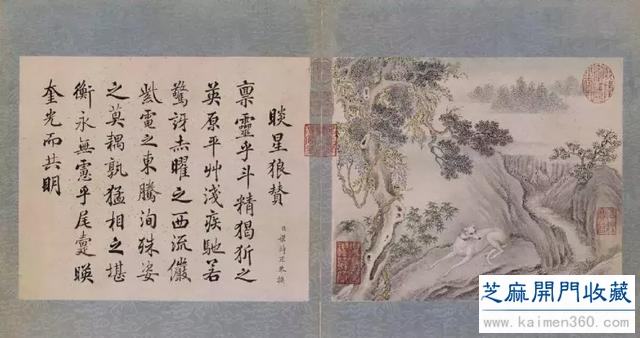 睒星狼賛
臣梁詩正恭撰
禀靈乎斗精猲之
英原平艸淺疾馳若
驚訝赤曜之西流儼
紫電之東騰洵殊姿
之莫耦孰猛相之堪
衡永無慮乎尾疐睒
奎光而共明
芝麻開門收藏
www.kaimen360.com